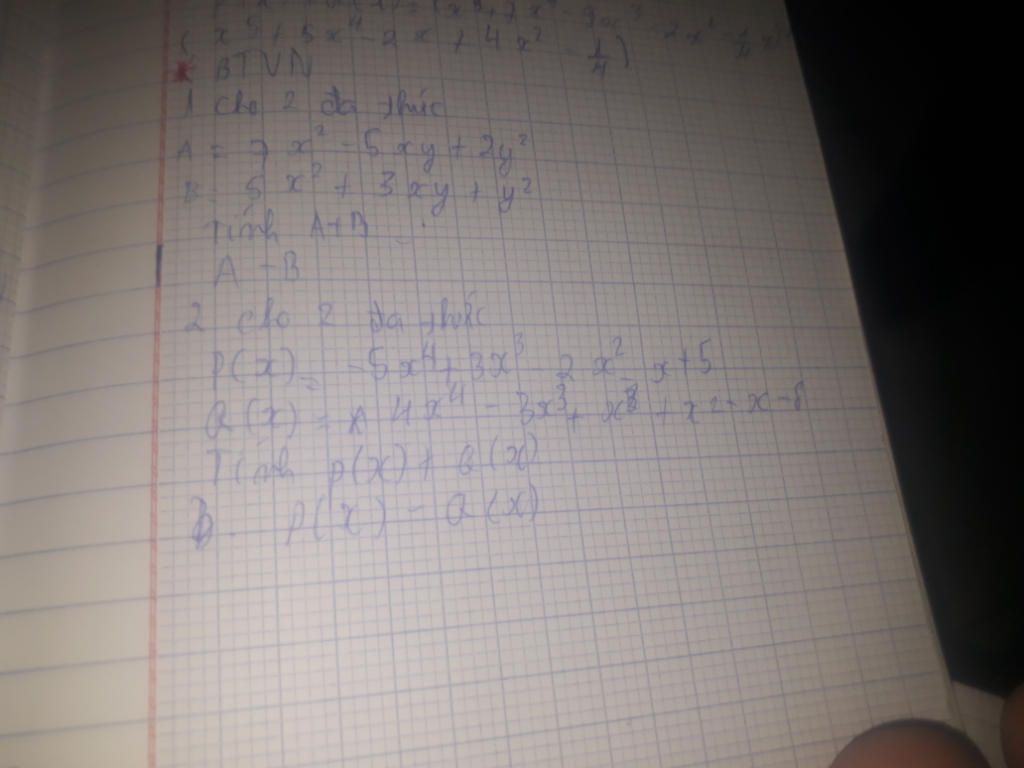 ( x⁵ + 5x⁴ - 2x + 4x² - 1/4 )
* BTVN
1 cho 2 đa thức
A = 7 x² - 5xy + 2y²
B = 5 x² + 3xy + y²
Tính A+B
A - B
2 cho 2 đa thức
P(x) = -5x⁴ + 3x³ - 2x² - x + 5
Q(x) = 4x⁴ - 3x³ + x³ + x² - x - 8
Tính p(x) + Q(x)
P(x) - Q(x)